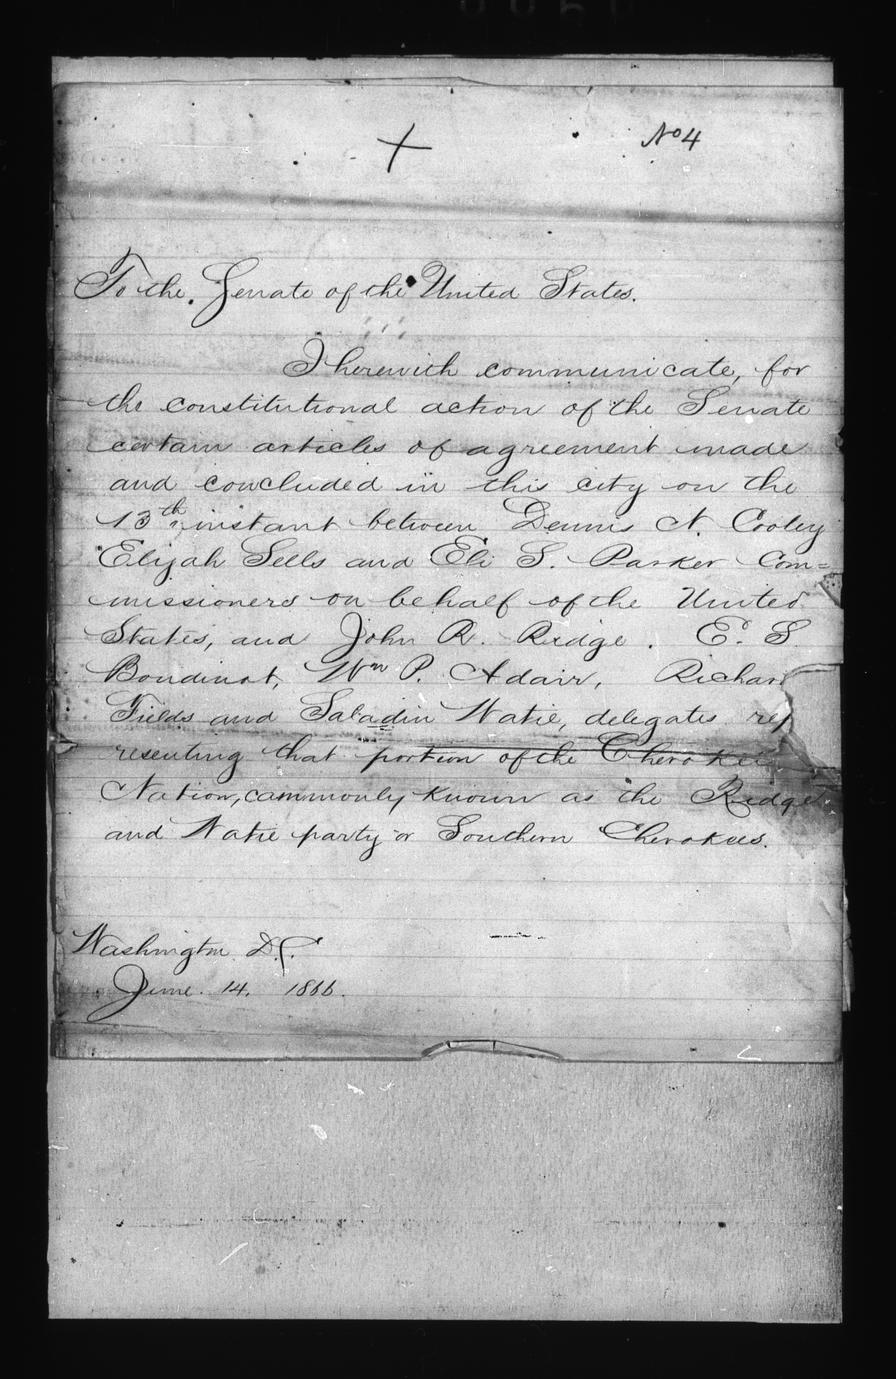 No 4
To the Senate of the United States.
I herewith communicate, for
the constitutional action of the Senate
certain articles of agreement made
and concluded in this city on the
13th instant between Dennis N. Cooley
Elijah Sells and Eli S. Parker Com=
missioners on behalf of the United
States, and John R. Ridge. E. S.
Boudinot, Wm P. Adair, Richard
Fields and Saladin Watie, delegates rep
resenting that portion of the Cherokee
Nation, commonly known as the Ridge
and Watie party or Southern Cherokees.
Washington D.C.
June 14. 1866.